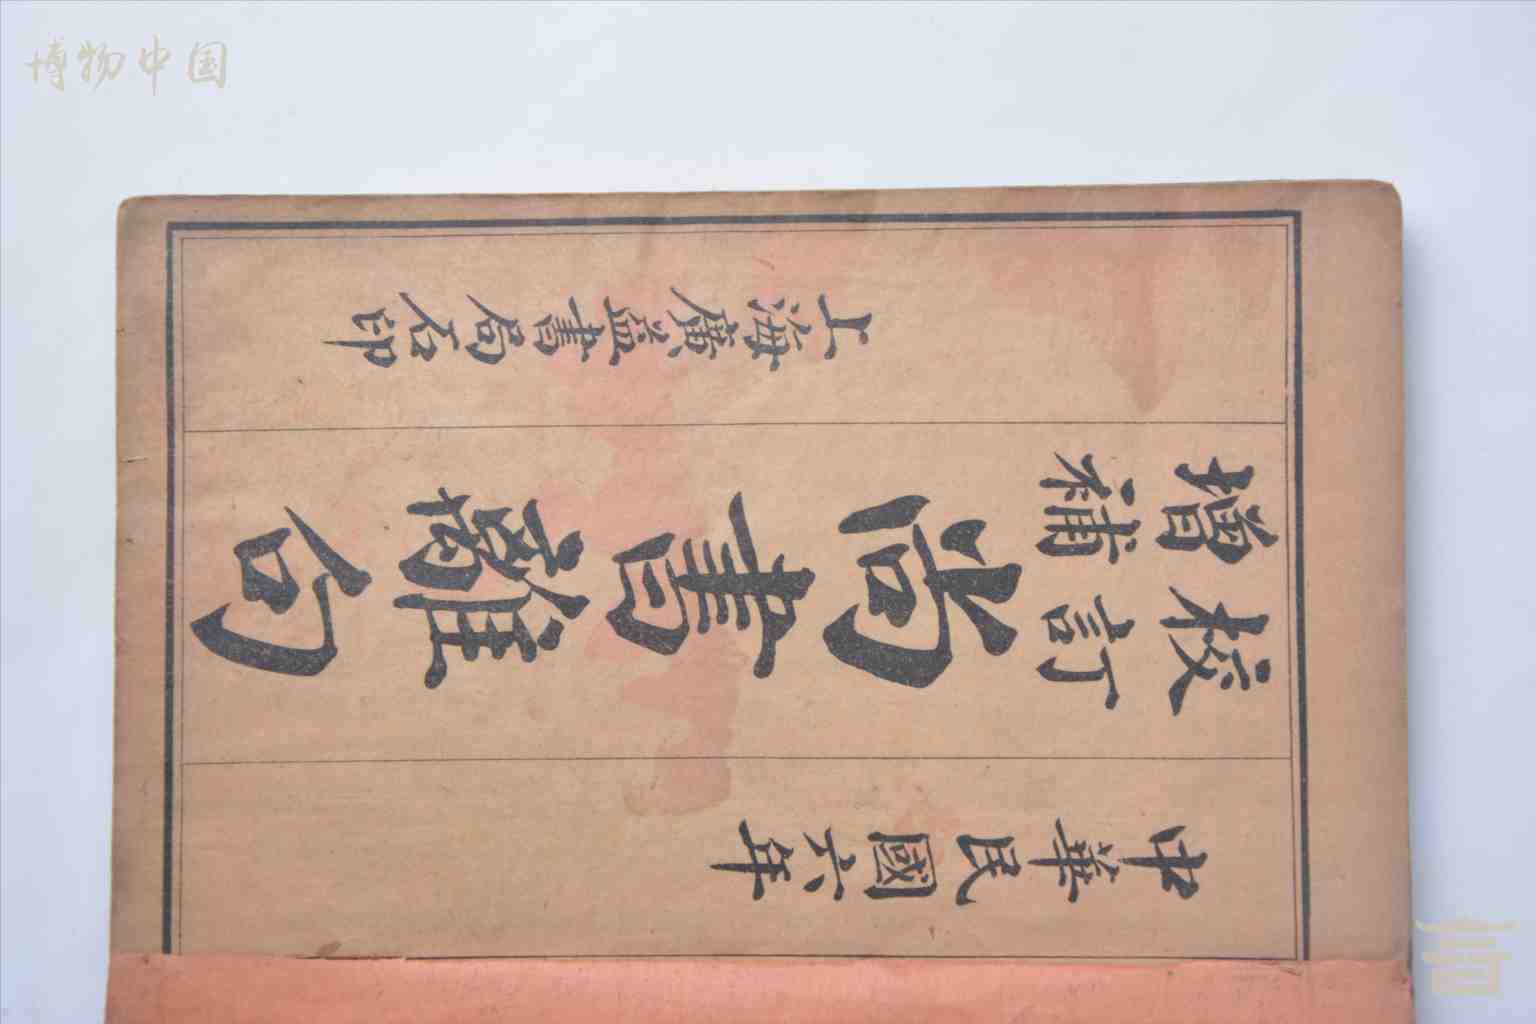 博物中国
中華民國六年
校訂
增補
尚書離句
上海廣益書局石印